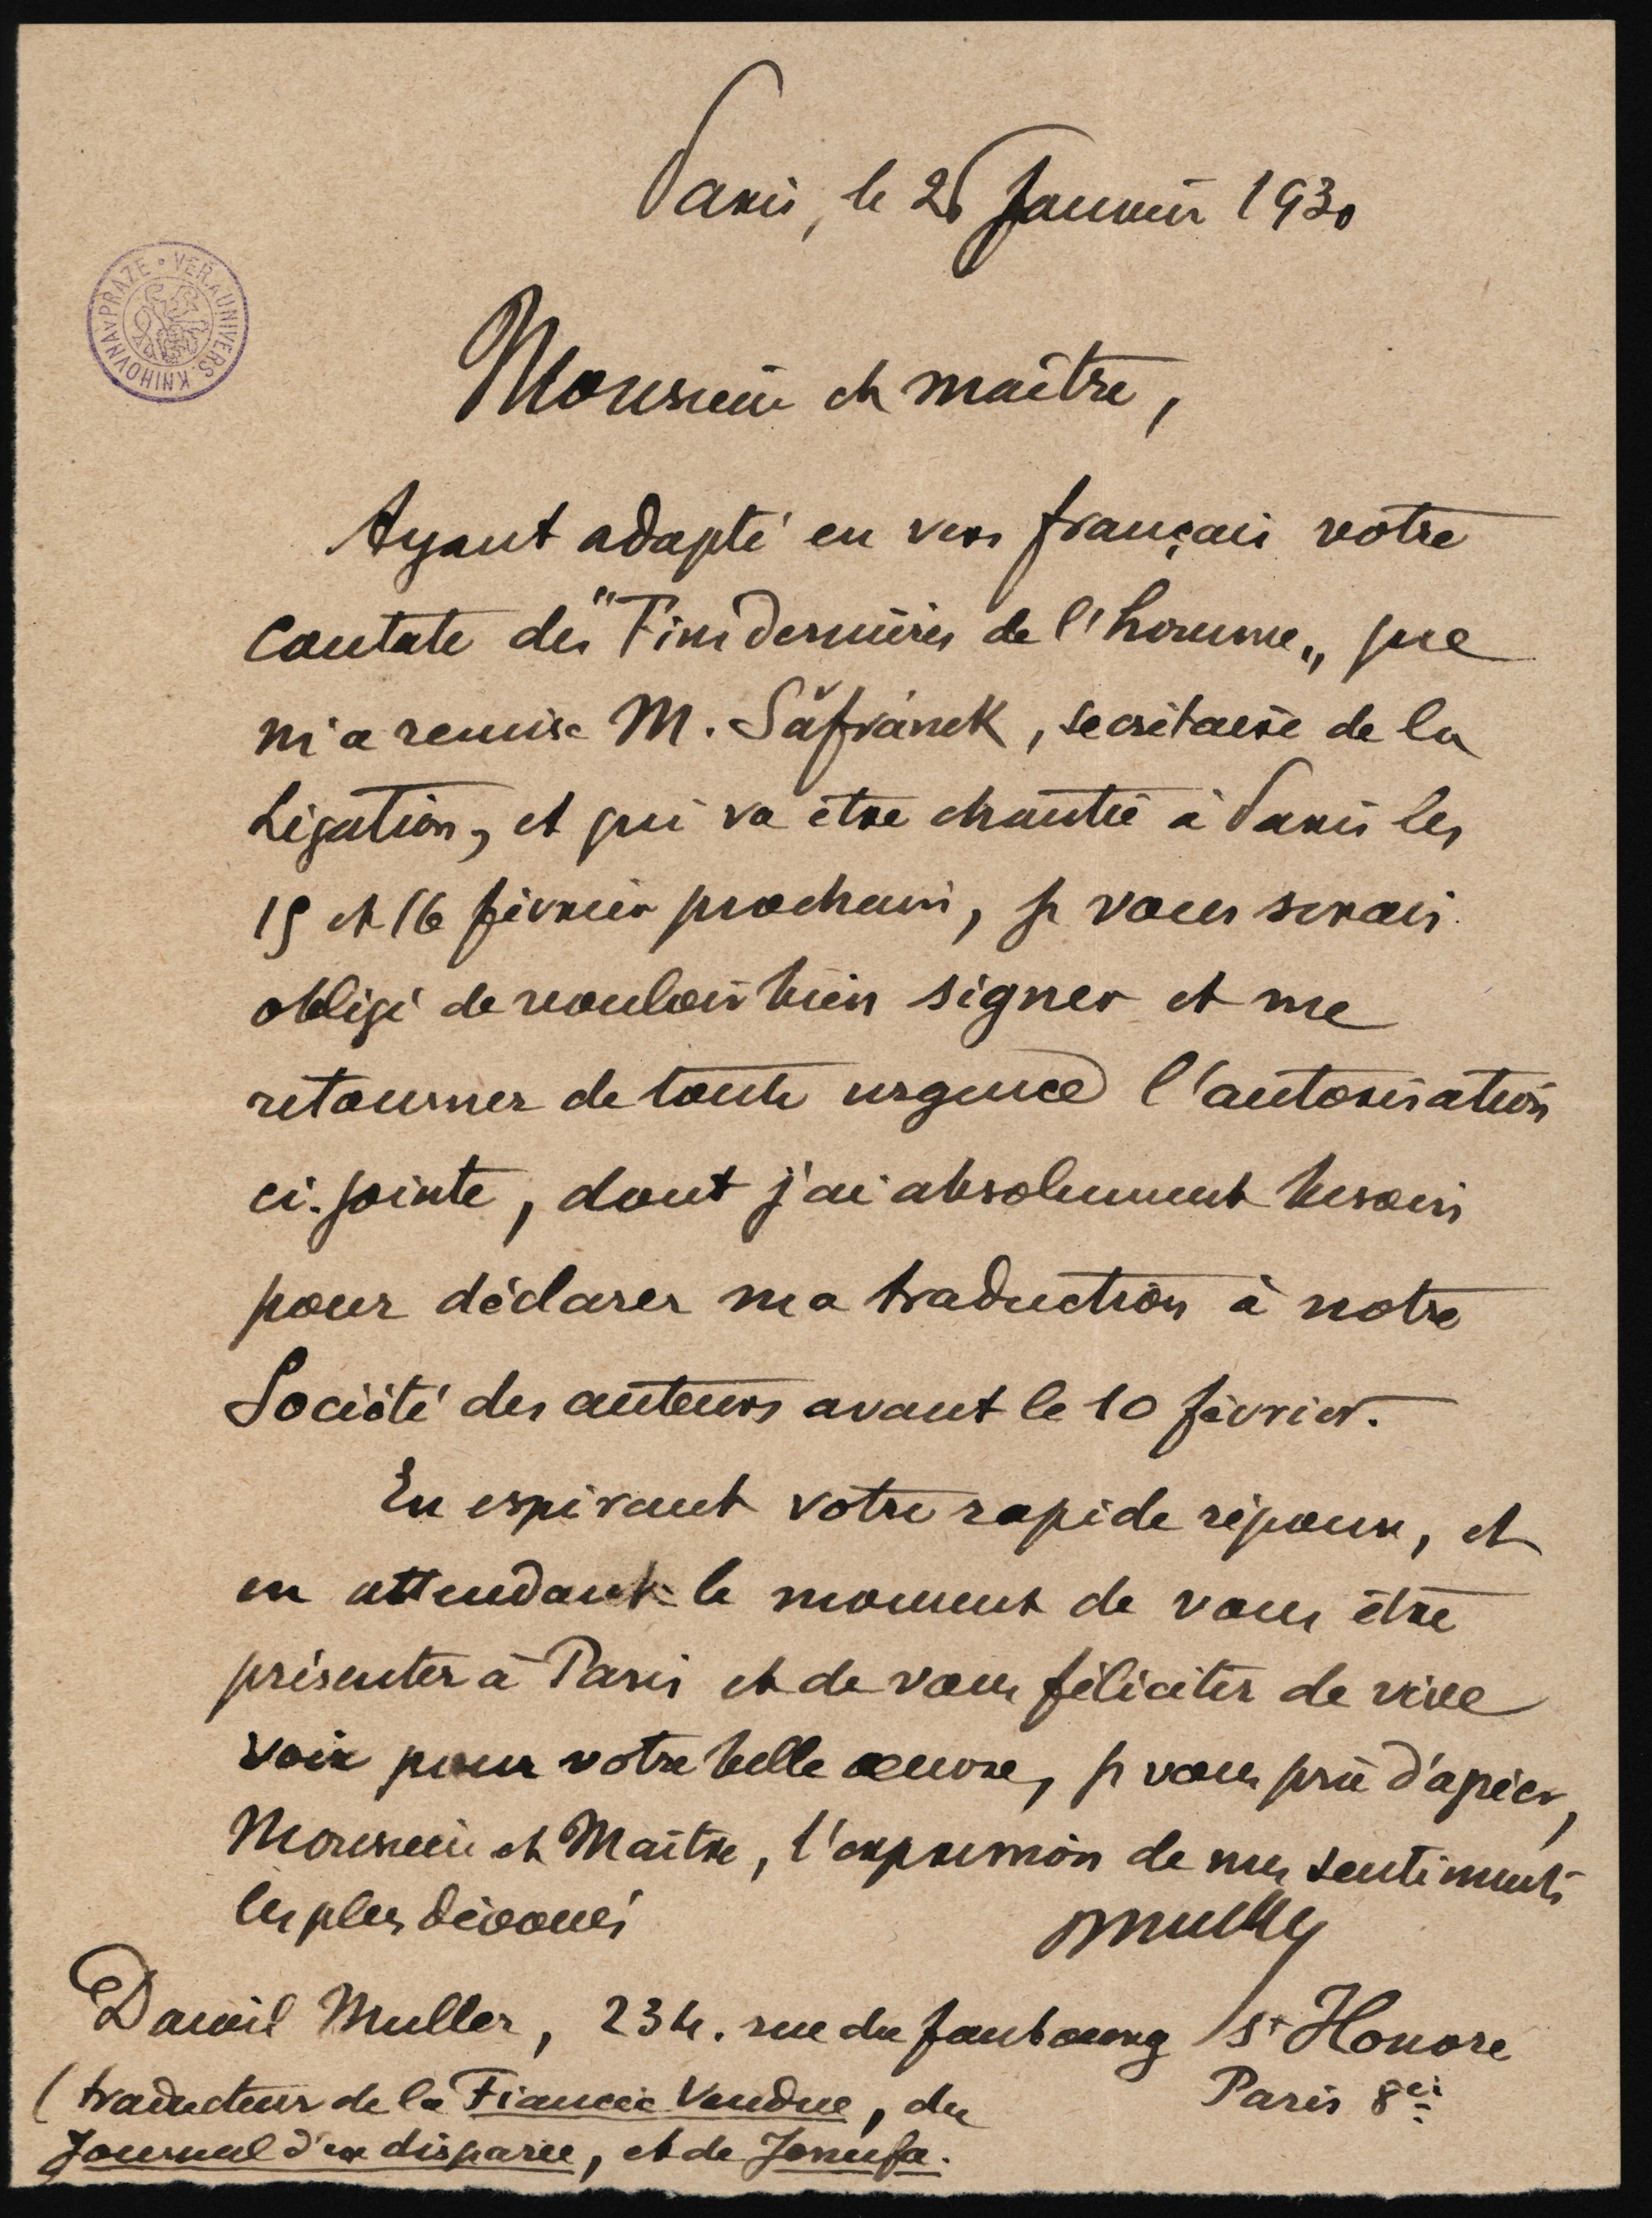 Paris, le 26 Janvier 1930
VEŘ. A UNIVERS. KNIHOVNA V PRAZE
Monsieur et maître,
Ayant adapté en vers français votre
Cantate des "Fins dernières de l'homme„ que
m'a remise M. Šafránek, secrétaire de la
Légation, et qui va être chantée à Paris les
15 et 16 février prochain, je vous serais
obligé de vouloir bien signer et me
retourner de toute urgence l'autorisation
ci-jointe, dont j'ai absolument besoin
pour déclarer ma traduction à notre
Société des auteurs avant le 10 février.
En espérant votre rapide réponse, et
en attendant le moment de vous être
présenter à Paris et de vous féliciter de vive
voix pour votre belle œuvre, je vous prie d'agréer,
Monsieur et Maître, l'expression de mes sentiments
les plus dévoués
DMuller
Daniel Muller, 234. rue du faubourg St Honoré
Paris 8e
(traducteur de la Fiancée Vendue, du
Journal d'un disparu, et de Jenufa.